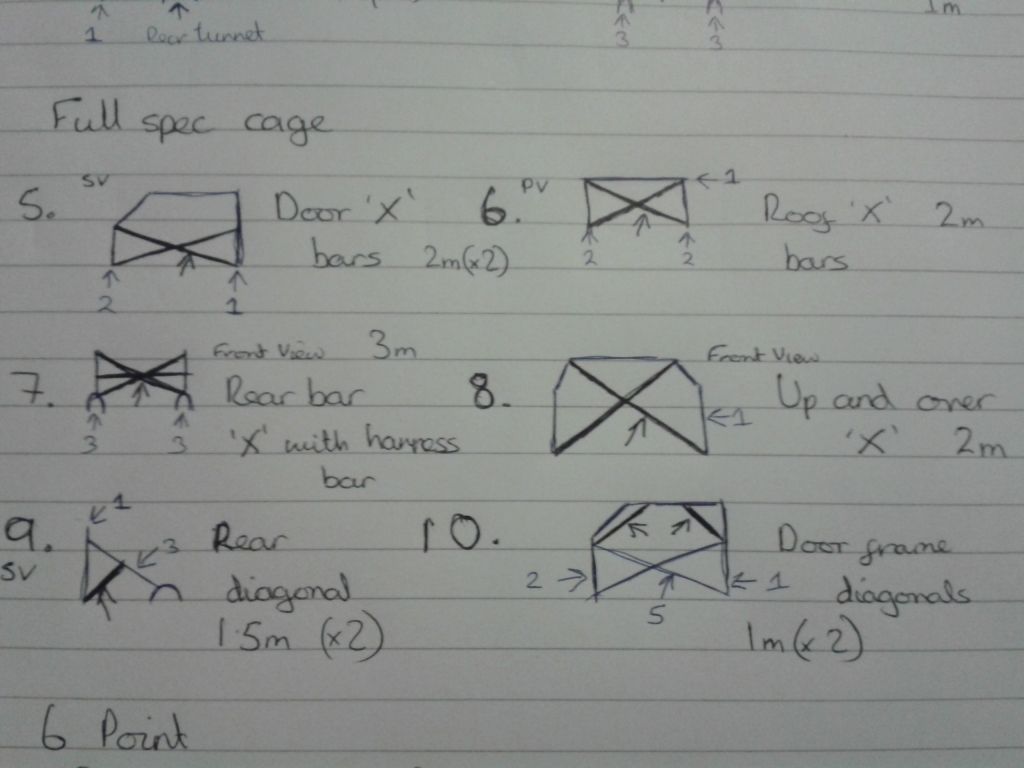 1m
1 Rear tunnel
3 3
Full spec cage
5. SV Door 'X'
bars 2m(x2)
2 1
6. PV ←1 Roof 'X' 2m
bars
2 2
7. Front View 3m
Rear bar
'X' with harness
bar
3 3
8. Front View
Up and over
'X' 2m
←1
9. SV 1 3 Rear
diagonal
1.5m (x2)
10. Door frame
diagonals
1m(x2)
2 → ← 1
5
6 Point